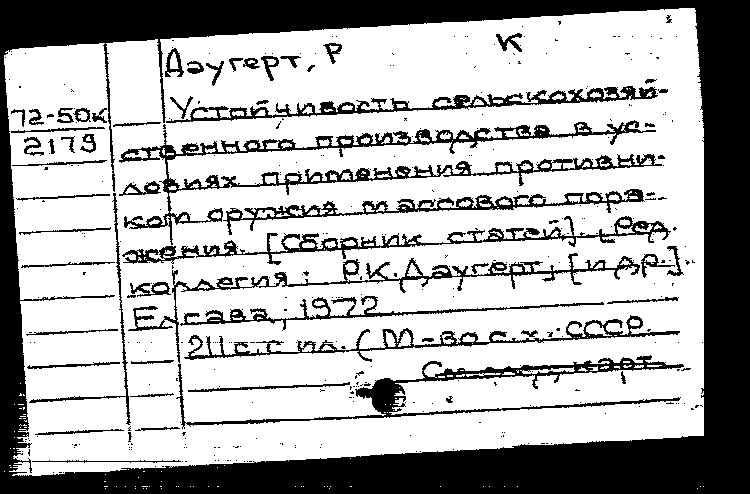 Даугерт, Р К
72-50к
2179
Устойчивость сельскохозяй-
ственного производства в ус-
ловиях применения противни-
ком оружия массового пора-
жения. [Сборник статей]. [Ред.
коллегия: Р.К. Даугерт, [и др.].
Елгава, 1972
211 с. с ил. (М-во с.х. СССР.
См. след. карт.